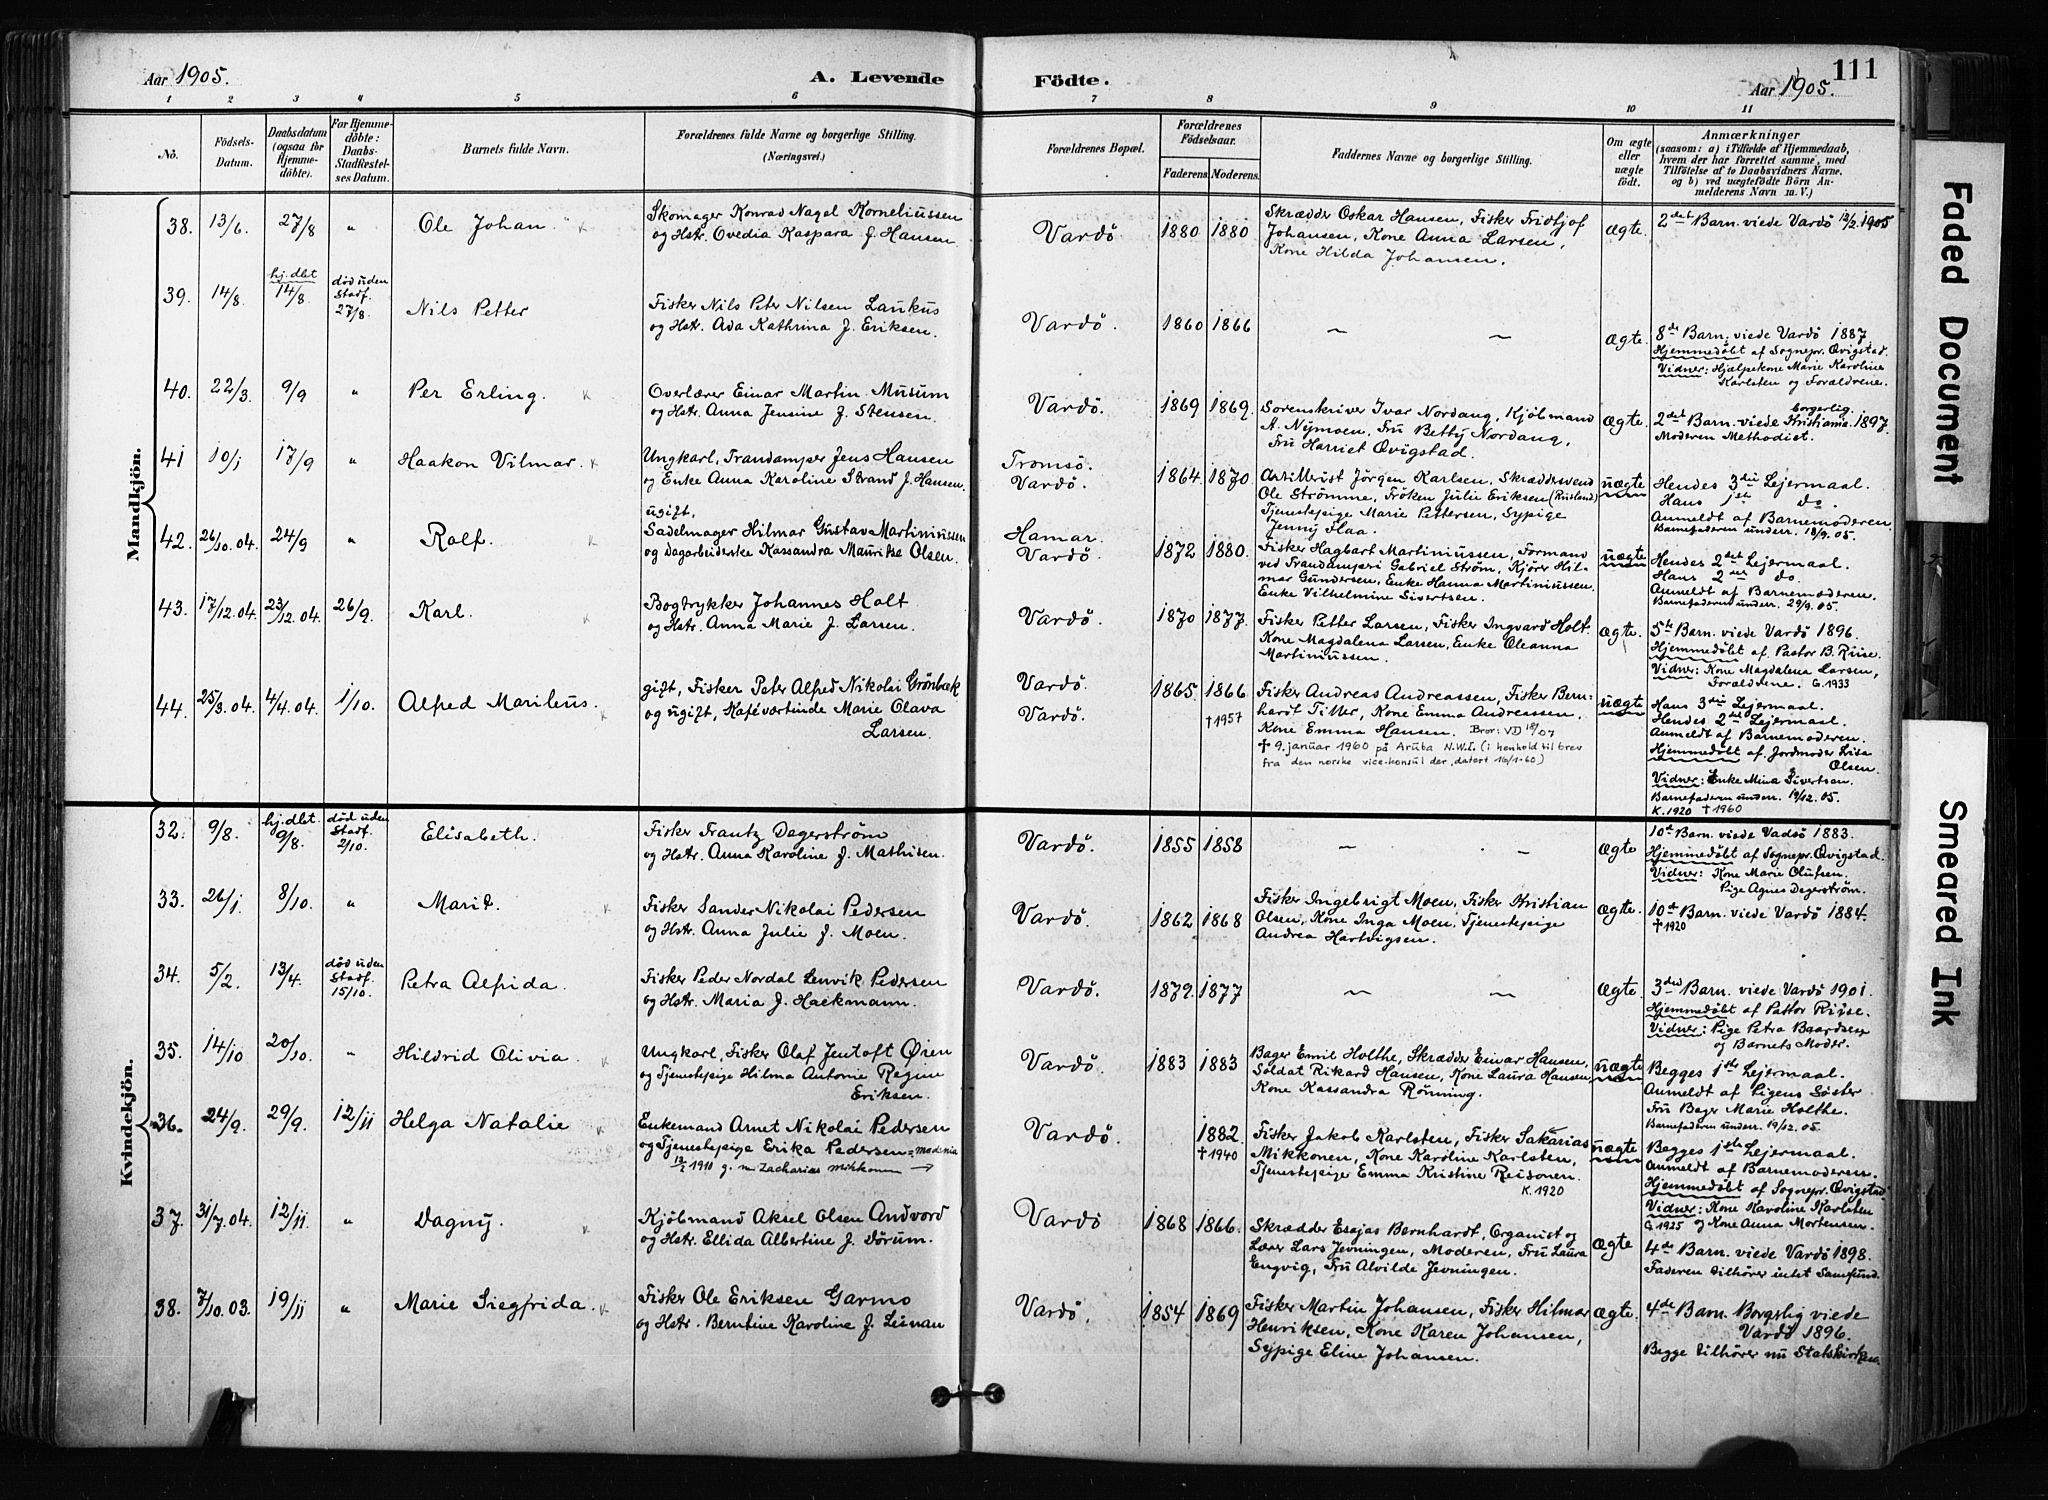 Aar 1905.
A. Levende
Födte.
Aar 1905.
111
1 2 3 4 5 6 7 8 9 10 11
No.
Födsels-Datum.
Daabsdatum (ogsaa for Hjemmedöbte).
For Hjemmedöbte: Daabs-Stadfæstelses Datum.
Barnets fulde Navn.
Forældrenes fulde Navne og borgerlige Stilling.
(Næringsvei.)
Forældrenes Bopæl.
Forældrenes Födselsaar.
Faderens. Moderens.
Faddernes Navne og borgerlige Stilling.
Om ægte eller uægte födt.
Anmærkninger
(saasom: a) i Tilfælde af Hjemmedaab,
hvem der har forrettet samme, med
Tilföielse af to Daabsvidners Navne.
og b) ved uægtefödte Börn Anmelderens Navn m. V.)
Mandkjön.
38. 13/6. 27/8 " Ole Johan
Skomager Konrad Nagel Korneliussen
og Hstr. Ovedia Kaspara f. Hansen
Vardö 1880 1880
Skrædder Oskar Hansen, Fisker Fridtjof
Johansen, Kone Anna Larsen,
Kone Hilda Johansen.
ægte. 2det Barn. viede Vardö 12/2 1905
39. 14/8. hj. dbt 14/8. död uden Stadf. 27/8. Nils Petter
Fisker Nils Peter Nilsen Laukus
og Hstr. Ada Kathrina f. Eriksen.
Vardö. 1860 1866
ægte. 8de Barn. viede Vardö 1887.
Hjemmedöbt af Sognepr. Qvigstad.
Vidner: Hjælpekone Marie Karoline
Karlsten og Forældrene.
40. 22/3. 9/9 " Per Erling.
Overlærer Einar Martin Musum
og Hstr. Anna Jensine f. Stensen.
Vardö. 1869 1869.
Sorenskriver Ivar Nordang, Kjöbmand
A. Nymoen, Fru Betty Nordang,
Fru Harriet Qvigstad.
ægte. 2det Barn. viede borgerlig. Kristiania 1897.
Moderen Methodist.
41 10/1 17/9 " Haakon Vilmar.
Ungkarl, Trandamper Jens Hansen
og Enke Anna Karoline Strand f. Hansen.
Tromsö.
Vardö. 1864 1870
Artillerist Jörgen Karlsen, Skræddersvend
Ole Strömme, Fröken Julie Eriksen (Rusland)
Tjenestepige Marie Pettersen, Sypige
Jenny Flaa.
uægte Hendes 3die Lejermaal.
Hans 1ste do.
Anmeldt af Barnemoderen.
Barnefaderen underr. 18/9. 05.
42. 26/10. 04. 24/9 " Rolf.
ugift,
Sadelmager Hilmar Gustav Martiniussen
og Dagarbeiderske Kassandra Mauritse Olsen.
Hamar.
Vardö. 1872 1880.
Fisker Hagbart Martiniussen, Formand
ved Trandamperi Gabriel Ström, Kjörer Hilmar
Gundersen, Enke Hanna Martiniussen.
Enke Vilhelmine Sivertsen.
uægte Hendes 2det Lejermaal.
Hans 2det do.
Anmeldt af Barnemoderen.
Barnefaderen underr. 29/9. 05.
43. 17/12. 04. 23/12. 04. 26/9. Karl.
Bogtrykker Johannes Holt
og Hstr. Anna Marie f. Larsen.
Vardö. 1870 1877.
Fisker Petter Larsen, Fisker Ingvard Holt.
Kone Magdalena Larsen, Enke Oleanna
Martiniussen.
ægte. 5te Barn. viede Vardö 1896.
Hjemmedöbt af Pastor B. Riise.
Vidner: Kone Magdalena Larsen,
Forældrene. G. 1933
44. 25/3. 04. 4/4. 04. 1/10. Alfred Marilius.
gift, Fisker Peter Alfred Nikolai Grönbæk
og ugift, Kafeværtinde Marie Olava
Larsen.
Vardö.
Vardö. 1865 1866
†1957
Fisker Andreas Andreassen, Fisker Bernhardt
Titter, Kone Emma Andreassen,
Kone Emma Hansen. Bror: VD 18/07
† 9. januar 1960 på Aruba N.W.I. (i henhold til brev
fra den norske vice-konsul der, datert 16/1-60)
uægte Hans 3die Lejermaal.
Hendes 2det Lejermaal.
Anmeldt af Barnemoderen.
Hjemmedöbt af Jordmoder Lisa
Olsen.
Vidner: Enke Mina Sivertsen.
Barnefaderen underr. 19/12. 05.
K. 1920 †1960
Kvindekjön.
32. 9/8. hj. dbt. 9/8. död uden Stadf. 2/10. Elisabeth.
Fisker Frantz Degerström
og Hstr. Anna Karoline f. Mathisen.
Vardö. 1855 1858
Ægte 10de Barn. viede Vadsö 1883.
Hjemmedöbt af Sognepr. Qvigstad.
Vidner: Kone Marie Olufsen.
Pige Agnes Degerström.
33. 26/1. 8/10. " Marit.
Fisker Sander Nikolai Pedersen
og Hstr. Anna Julie f. Moen.
Vardö. 1862 1868
Fisker Ingebrigt Moen, Fisker Kristian
Olsen, Kone Inga Moen, Tjenestepige
Andrea Hartvigsen.
Ægte. 10de Barn. viede Vardö 1884.
†1920
34. 5/2. 13/4. död uden Stadf. 15/10. Petra Alfrida.
Fisker Peder Nordal Lenvik Pedersen
og Hstr. Maria f. Hackmann.
Vardö. 1872. 1877
Ægte. 3die Barn. viede Vardö 1901.
Hjemmedöbt af Pastor Riise.
Vidner: Pige Petra Baardsen
og Barnets Moder.
35. 14/10 20/10. " Hildrid Olivia.
Ungkarl, Fisker Olaf Jentoft Öien
og Tjenestepige Hilma Antonie Regine
Eriksen.
Vardö. 1883 1883
Bager Emil Holthe, Skrædder Einar Hansen,
Soldat Rikard Hansen, Kone Laura Hansen,
Kone Kassandra Rönning.
uægte Begges 1ste Lejermaal.
Anmeldt af Pigens Söster
Fru Bager Marie Holthe.
Barnefaderen underr. 19/12. 05.
36. 24/9. 29/9. 12/11 Helga Natalie
Enkemand Arnet Nikolai Pedersen
og Tjenestepige Erika Pedersen
1910 g. m Zacharias Mikkonen →
Vardö. 1882.
†1940
Fisker Jakob Karlsten, Fisker Sakarias
Mikkonen, Kone Karoline Karlsten,
Tjenestepige Emma Kristine Reisonen.
K. 1920
uægte Begges 1ste Lejermaal.
Anmeldt af Barnemoderen.
Hjemmedöbt af Sognepr. Qvigstad.
Vidner: Kone Karoline Karlsten
G. 1925 og Kone Anna Mortensen.
37. 31/7. 04. 12/11. " Dagny.
Kjöbmand Aksel Olsen Andvord
og Hstr. Ellida Albertine f. Dörum.
Vardö 1868 1866.
Skrædder Esajas Bernhardt, Organist og
Lærer Lars Jevningen, Moderen, Fru Laura
Engvig, Fru Alvilde Jevningen.
Ægte 4de Barn. viede Vardö 1898.
Faderen tilhörer intet Samfund.
38. 7/10. 03. 19/11 " Marie Siegfrida.
Fisker Ole Eriksen Garmo
og Hstr. Berntine Karoline f. Lisnau
Vardö. 1854 1869
Fisker Martin Johansen, Fisker Hilmar
Henriksen, Kone Karen Johansen,
Sypige Eline Johansen.
ægte. 4de Barn. Borgerlig viede
Vardö 1896.
Begge tilhörer nu Statskirken.
Faded Document
Smeared Ink